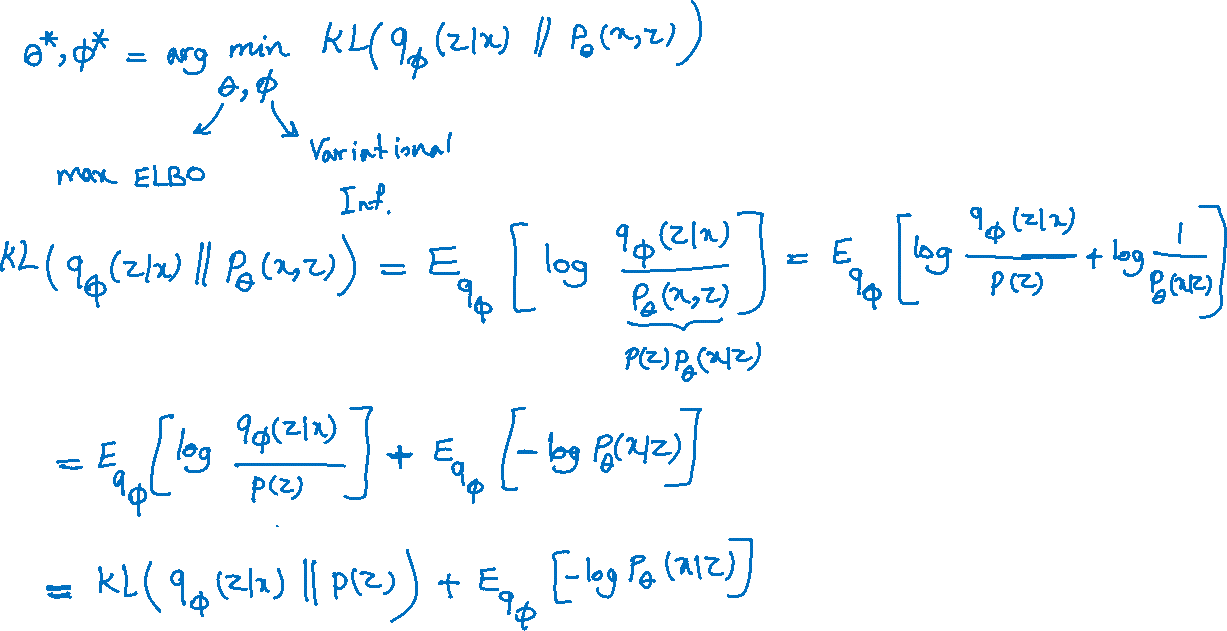 θ*, φ* = arg min KL( qφ(z|x) // Pθ(x,z) )
θ, φ
max ELBO
Variational
Inf.
KL( qφ(z|x) // Pθ(x,z) ) = E_qφ [ log qφ(z|x) / Pθ(x,z) ] = E_qφ [ log qφ(z|x) / P(z) + log 1 / Pθ(x|z) ]
P(z) Pθ(x|z)
= E_qφ [ log qφ(z|x) / P(z) ] + E_qφ [ - log Pθ(x|z) ]
= KL( qφ(z|x) || P(z) ) + E_qφ [ -log Pθ(x|z) ]